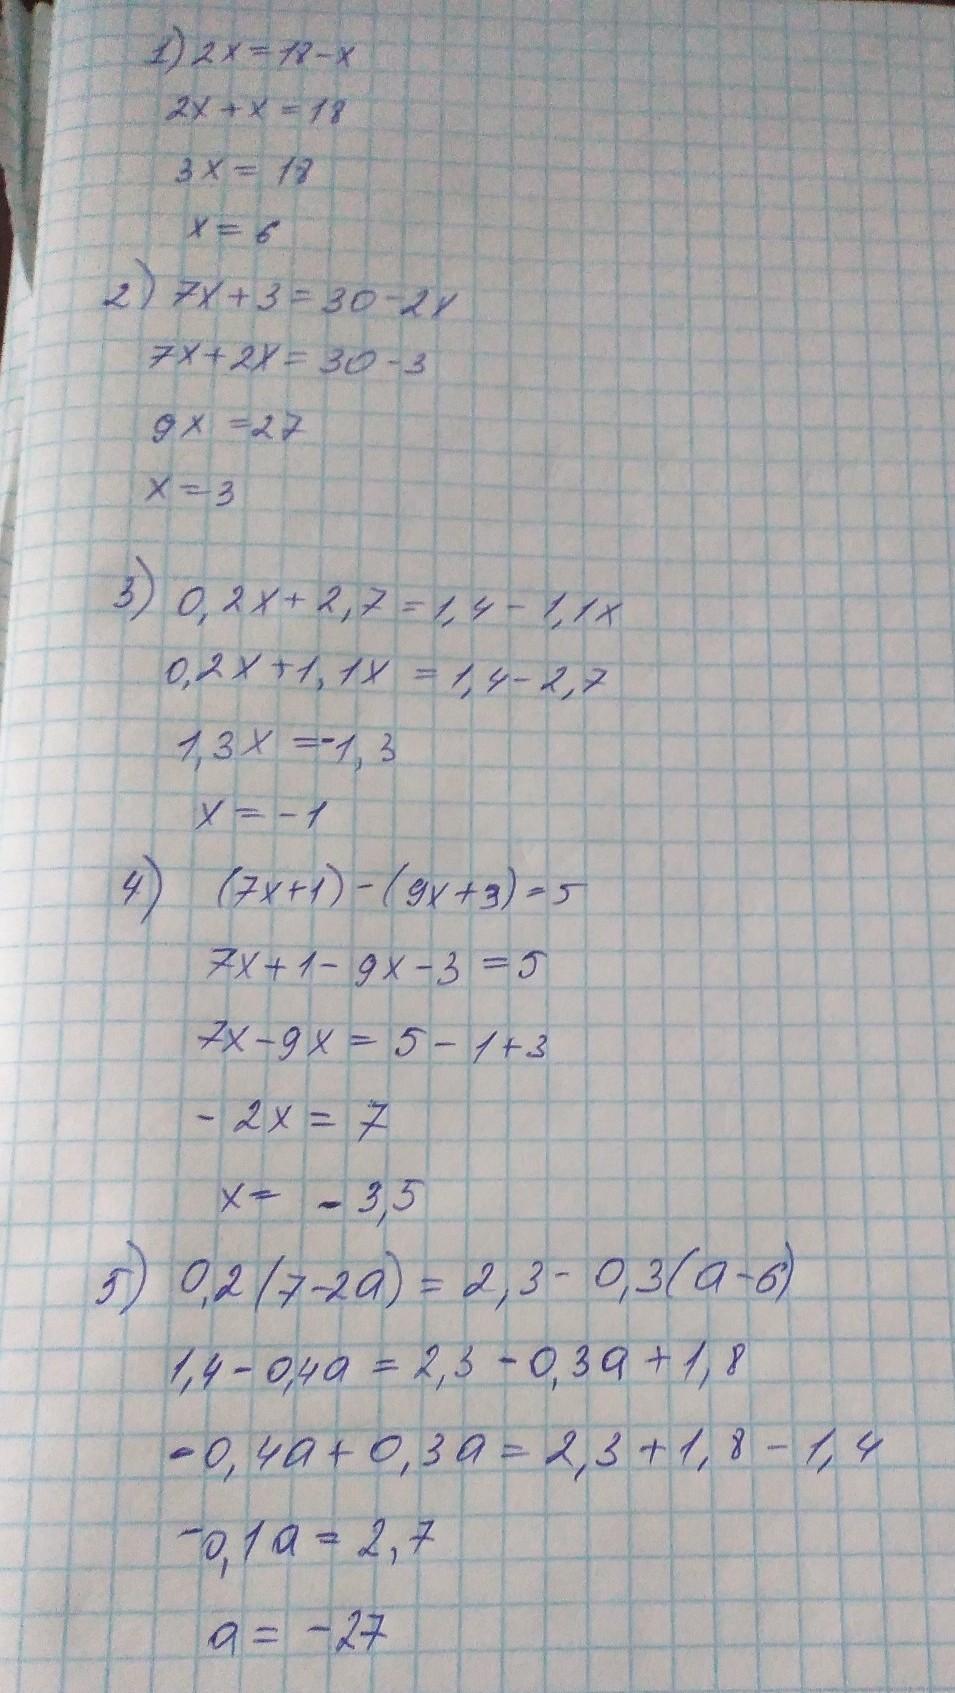 1) 2x = 18 - x
2x + x = 18
3x = 18
x = 6
2) 7x + 3 = 30 - 2x
7x + 2x = 30 - 3
9x = 27
x = 3
3) 0,2x + 2,7 = 1,4 - 1,1x
0,2x + 1,1x = 1,4 - 2,7
1,3x = -1,3
x = -1
4) (7x+1) - (9x+3) = 5
7x + 1 - 9x - 3 = 5
7x - 9x = 5 - 1 + 3
- 2x = 7
x = - 3,5
5) 0,2(7-2a) = 2,3 - 0,3(a-6)
1,4 - 0,4a = 2,3 - 0,3a + 1,8
-0,4a + 0,3a = 2,3 + 1,8 - 1,4
-0,1a = 2,7
a = -27